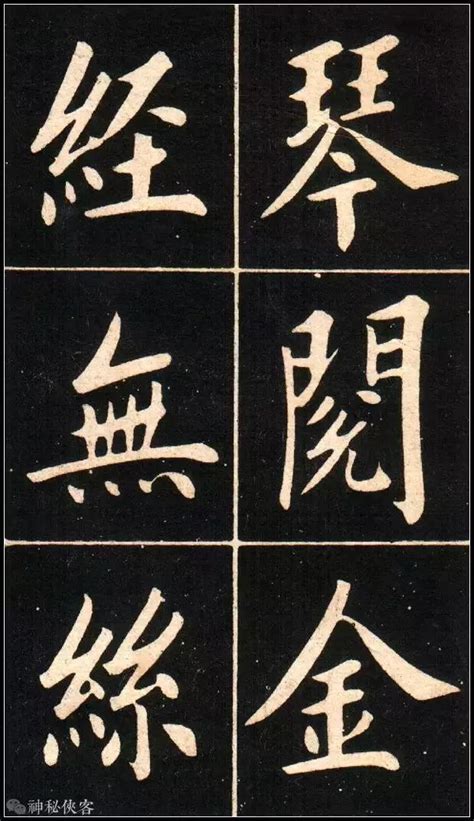 琴閱金
経無絲
神秘俠客